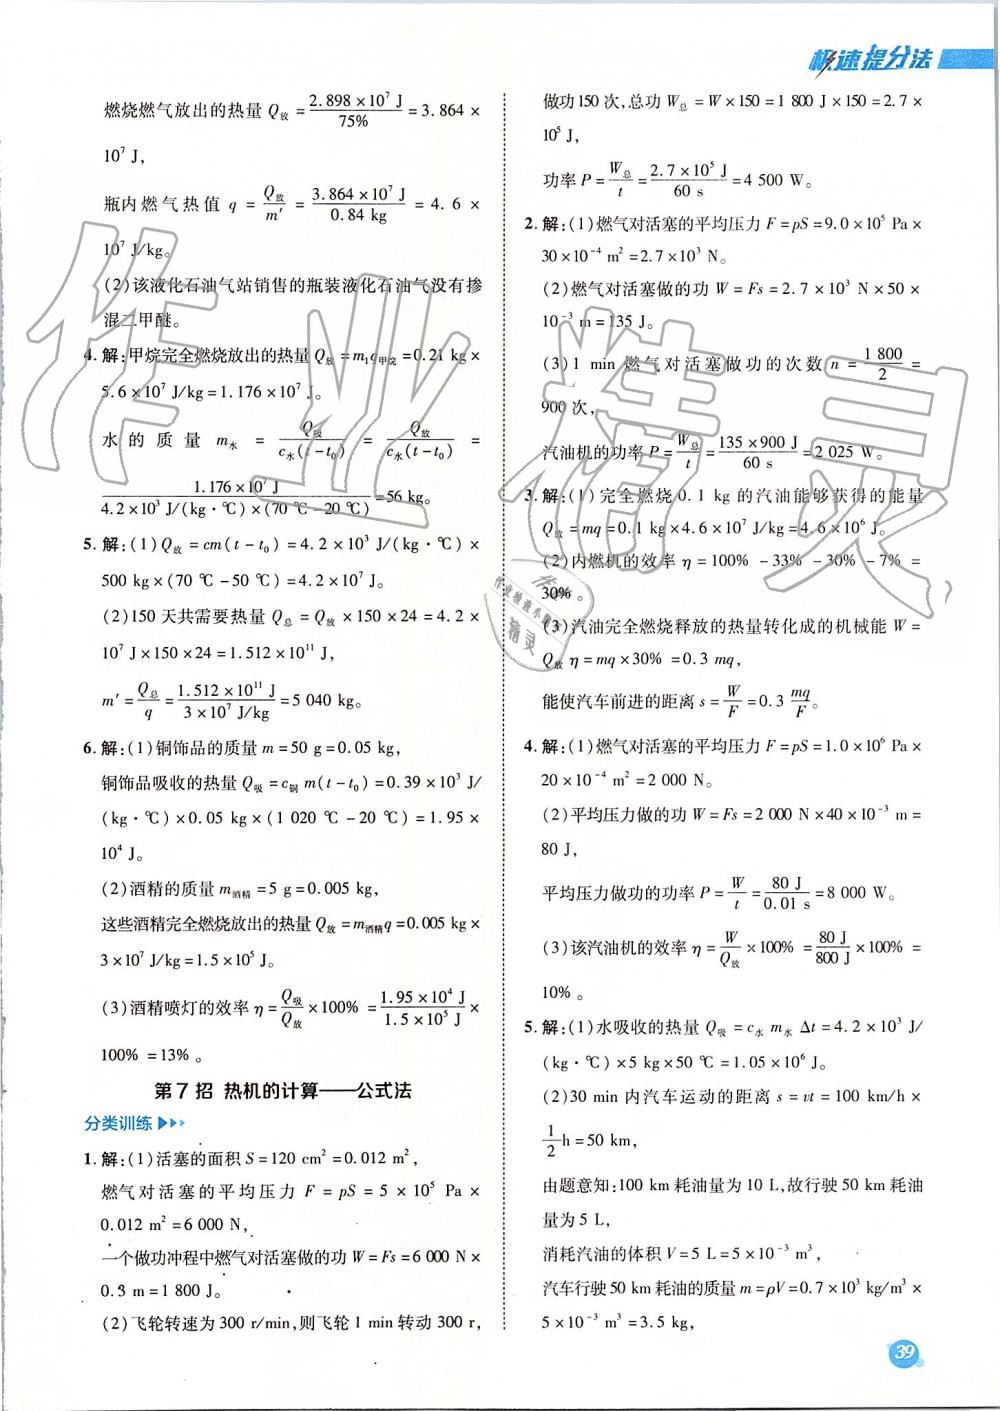 极速提分法
燃烧燃气放出的热量 Q放 = 2.898×10⁷ J / 75% = 3.864×
10⁷ J,
瓶内燃气热值 q = Q放 / m′ = 3.864×10⁷ J / 0.84 kg = 4.6×
10⁷ J/kg。
(2)该液化石油气站销售的瓶装液化石油气没有掺
混二甲醚。
4.解:甲烷完全燃烧放出的热量 Q放 = m₁q甲烷 = 0.21 kg×
5.6×10⁷ J/kg = 1.176×10⁷ J。
水的质量 m水 = Q吸 / c水(t-t₀) = Q放 / c水(t-t₀) =
1.176×10⁷ J / 4.2×10³ J/(kg·℃)×(70 ℃-20 ℃) = 56 kg。
5.解:(1)Q放 = cm(t-t₀) = 4.2×10³ J/(kg·℃)×
500 kg×(70 ℃-50 ℃) = 4.2×10⁷ J。
(2)150 天共需要热量 Q总 = Q放×150×24 = 4.2×
10⁷ J×150×24 = 1.512×10¹¹ J,
m′ = Q总 / q = 1.512×10¹¹ J / 3×10⁷ J/kg = 5 040 kg。
6.解:(1)铜饰品的质量 m = 50 g = 0.05 kg,
铜饰品吸收的热量 Q吸 = c铜 m(t-t₀) = 0.39×10³ J/
(kg·℃)×0.05 kg×(1 020 ℃-20 ℃) = 1.95×
10⁴ J。
(2)酒精的质量 m酒精 = 5 g = 0.005 kg,
这些酒精完全燃烧放出的热量 Q放 = m酒精q = 0.005 kg×
3×10⁷ J/kg = 1.5×10⁵ J。
(3)酒精喷灯的效率 η = Q吸 / Q放 ×100% = 1.95×10⁴ J / 1.5×10⁵ J ×
100% = 13%。
第 7 招 热机的计算——公式法
分类训练
1.解:(1)活塞的面积 S = 120 cm² = 0.012 m²,
燃气对活塞的平均压力 F = pS = 5×10⁵ Pa×
0.012 m² = 6 000 N,
一个做功冲程中燃气对活塞做的功 W = Fs = 6 000 N×
0.3 m = 1 800 J。
(2)飞轮转速为 300 r/min,则飞轮 1 min 转动 300 r,
做功150 次,总功 W总 = W×150 = 1 800 J×150 = 2.7×
10⁵ J,
功率 P = W总 / t = 2.7×10⁵ J / 60 s = 4 500 W。
2.解:(1)燃气对活塞的平均压力 F = pS = 9.0×10⁵ Pa×
30×10⁻⁴ m² = 2.7×10³ N。
(2)燃气对活塞做的功 W = Fs = 2.7×10³ N×50×
10⁻³ m = 135 J。
(3)1 min 燃气对活塞做功的次数 n = 1 800 / 2 =
900 次,
汽油机的功率 P = W总 / t = 135×900 J / 60 s = 2 025 W。
3.解:(1)完全燃烧 0.1 kg 的汽油能够获得的能量
Q放 = mq = 0.1 kg×4.6×10⁷ J/kg = 4.6×10⁶ J。
(2)内燃机的效率 η = 100% -33% -30% -7% =
30%。
(3)汽油完全燃烧释放的热量转化成的机械能 W =
Q放 η = mq×30% = 0.3 mq,
能使汽车前进的距离 s = W / F = 0.3 mq / F。
4.解:(1)燃气对活塞的平均压力 F = pS = 1.0×10⁶ Pa×
20×10⁻⁴ m² = 2 000 N。
(2)平均压力做的功 W = Fs = 2 000 N×40×10⁻³ m =
80 J,
平均压力做功的功率 P = W / t = 80 J / 0.01 s = 8 000 W。
(3)该汽油机的效率 η = W / Q放 ×100% = 80 J / 800 J ×100% =
10%。
5.解:(1)水吸收的热量 Q吸 = c水 m水 Δt = 4.2×10³ J/
(kg·℃)×5 kg×50 ℃ = 1.05×10⁶ J。
(2)30 min 内汽车运动的路程 s = vt = 100 km/h×
1/2 h = 50 km,
由题意知:100 km 耗油量为 10 L,故行驶 50 km 耗油
量为 5 L,
消耗汽油的体积 V = 5 L = 5×10⁻³ m³,
汽车行驶 50 km 耗油的质量 m = ρV = 0.7×10³ kg/m³×
5×10⁻³ m³ = 3.5 kg,
39
作业精灵